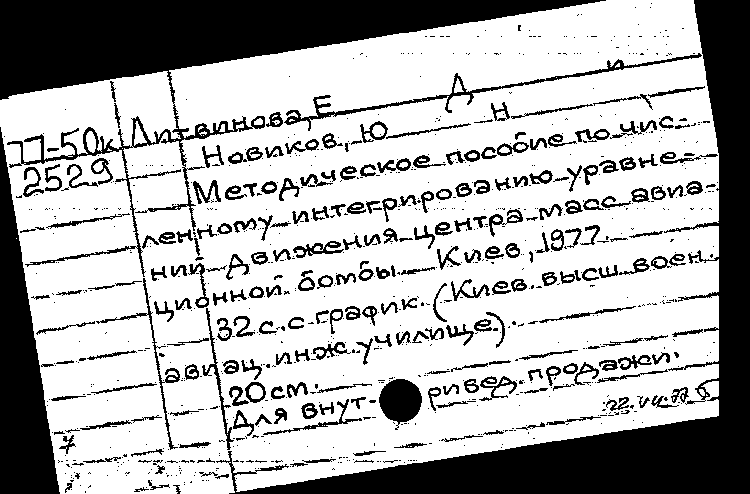 77-50к Литвинова, Е Д и
2529 Новиков, Ю Н
Методическое пособие по чис-
ленному интегрированию уравне-
ний движения центра масс авиа-
ционной бомбы Киев, 1977.
32 с. с график. (Киев. высш. воен.
авиац. инж. училище).
20 см.
Для внут- ривед. продажи.
7